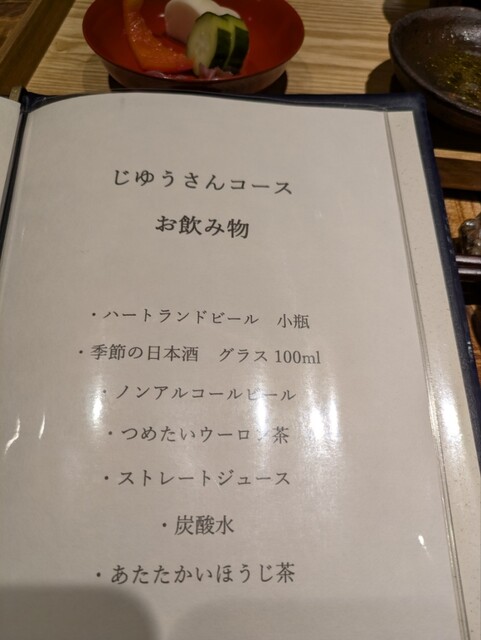 じゆうさんコース
お飲み物
・ハートランドビール　小瓶
・季節の日本酒　グラス100ml
・ノンアルコールビール
・つめたいウーロン茶
・ストレートジュース
・炭酸水
・あたたかいほうじ茶